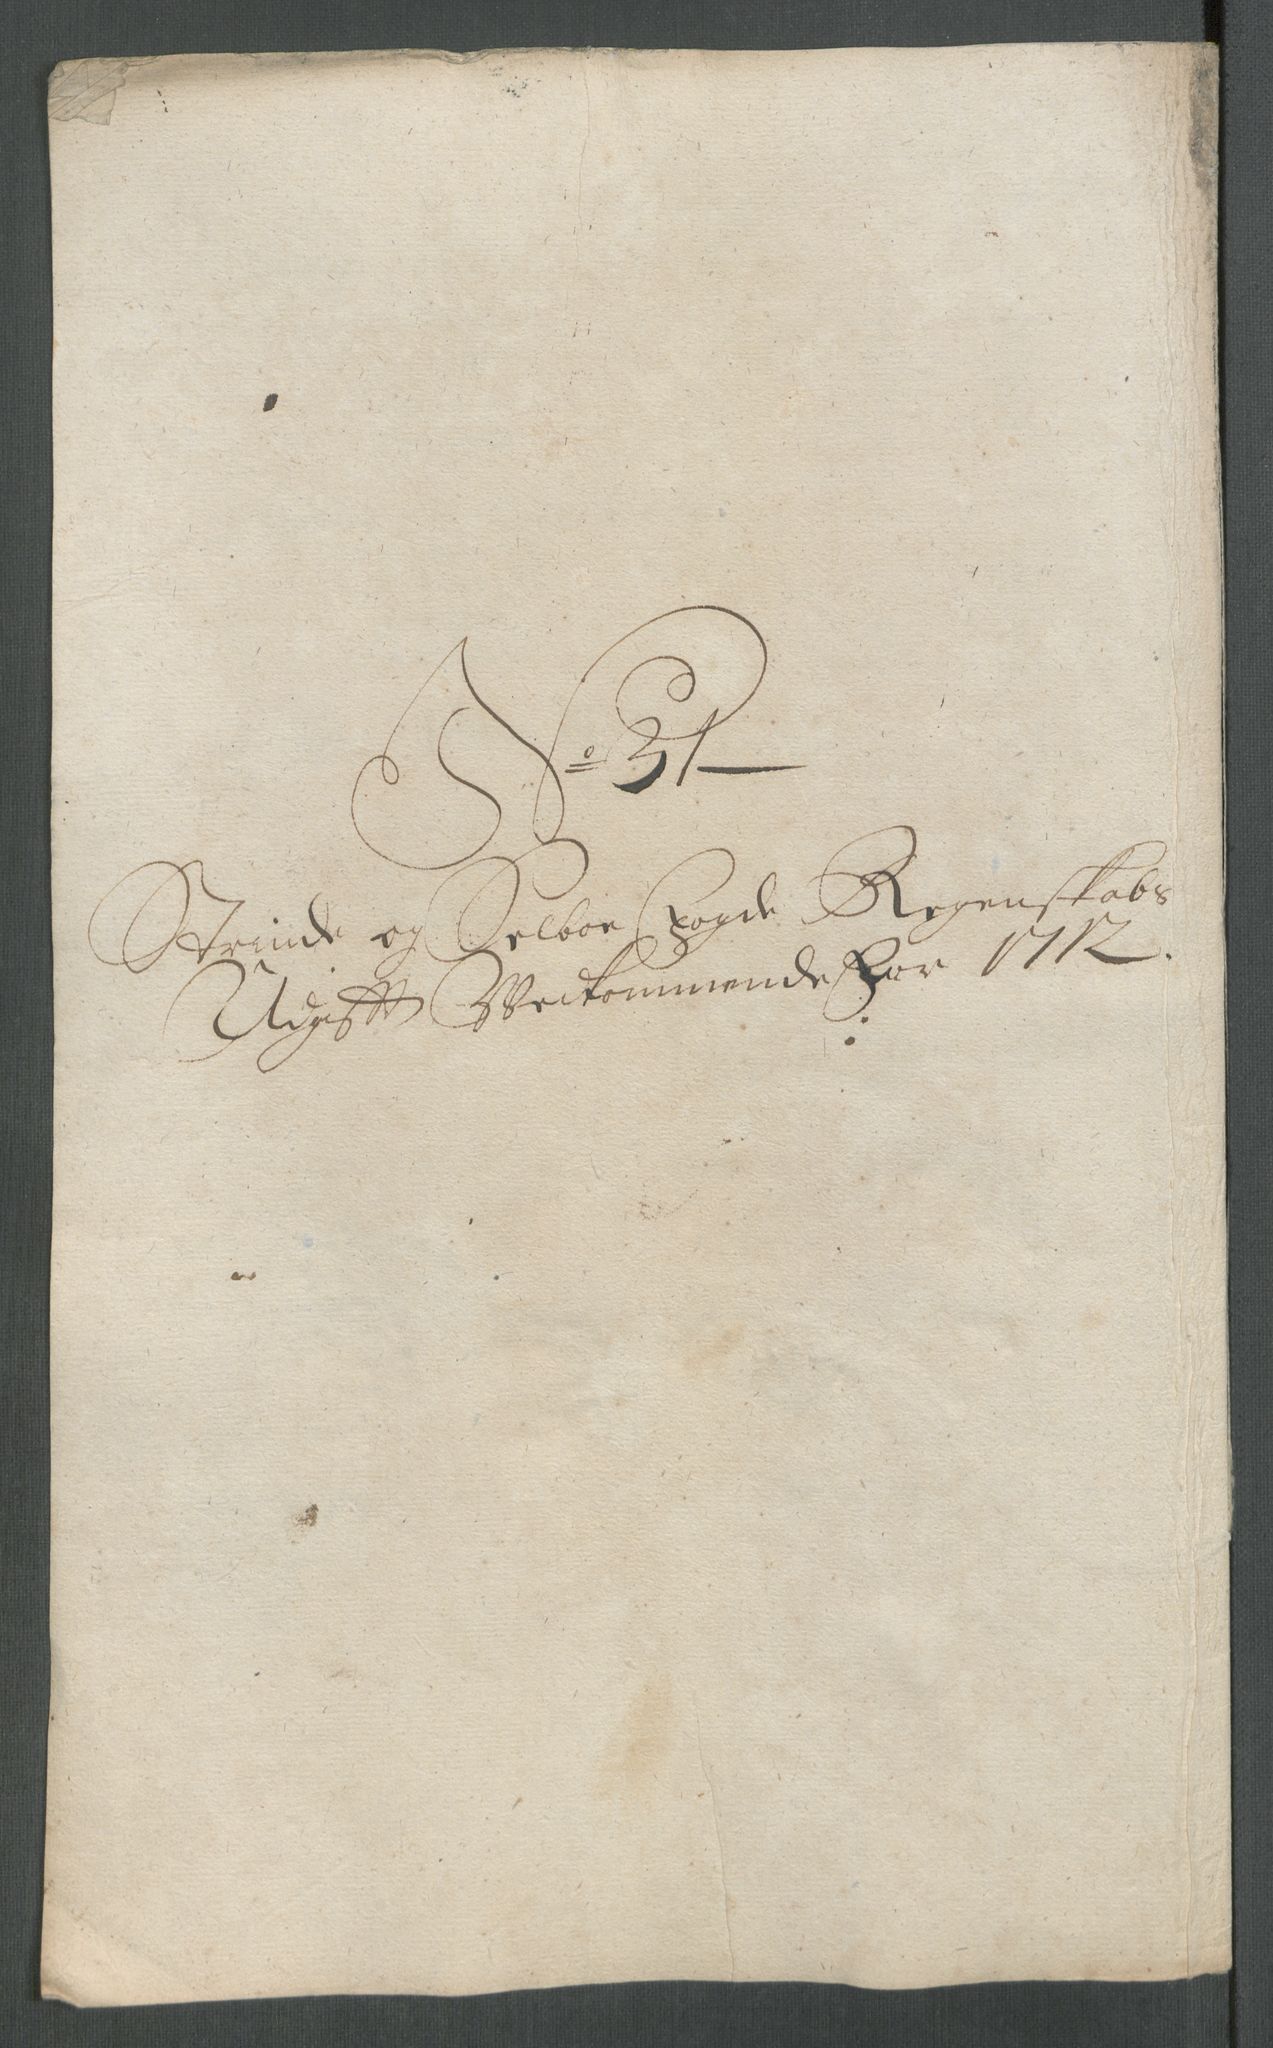 No 31
Strinde og Selboe Fogde Regenskabs
Udgifft Vedkommende For 1712.